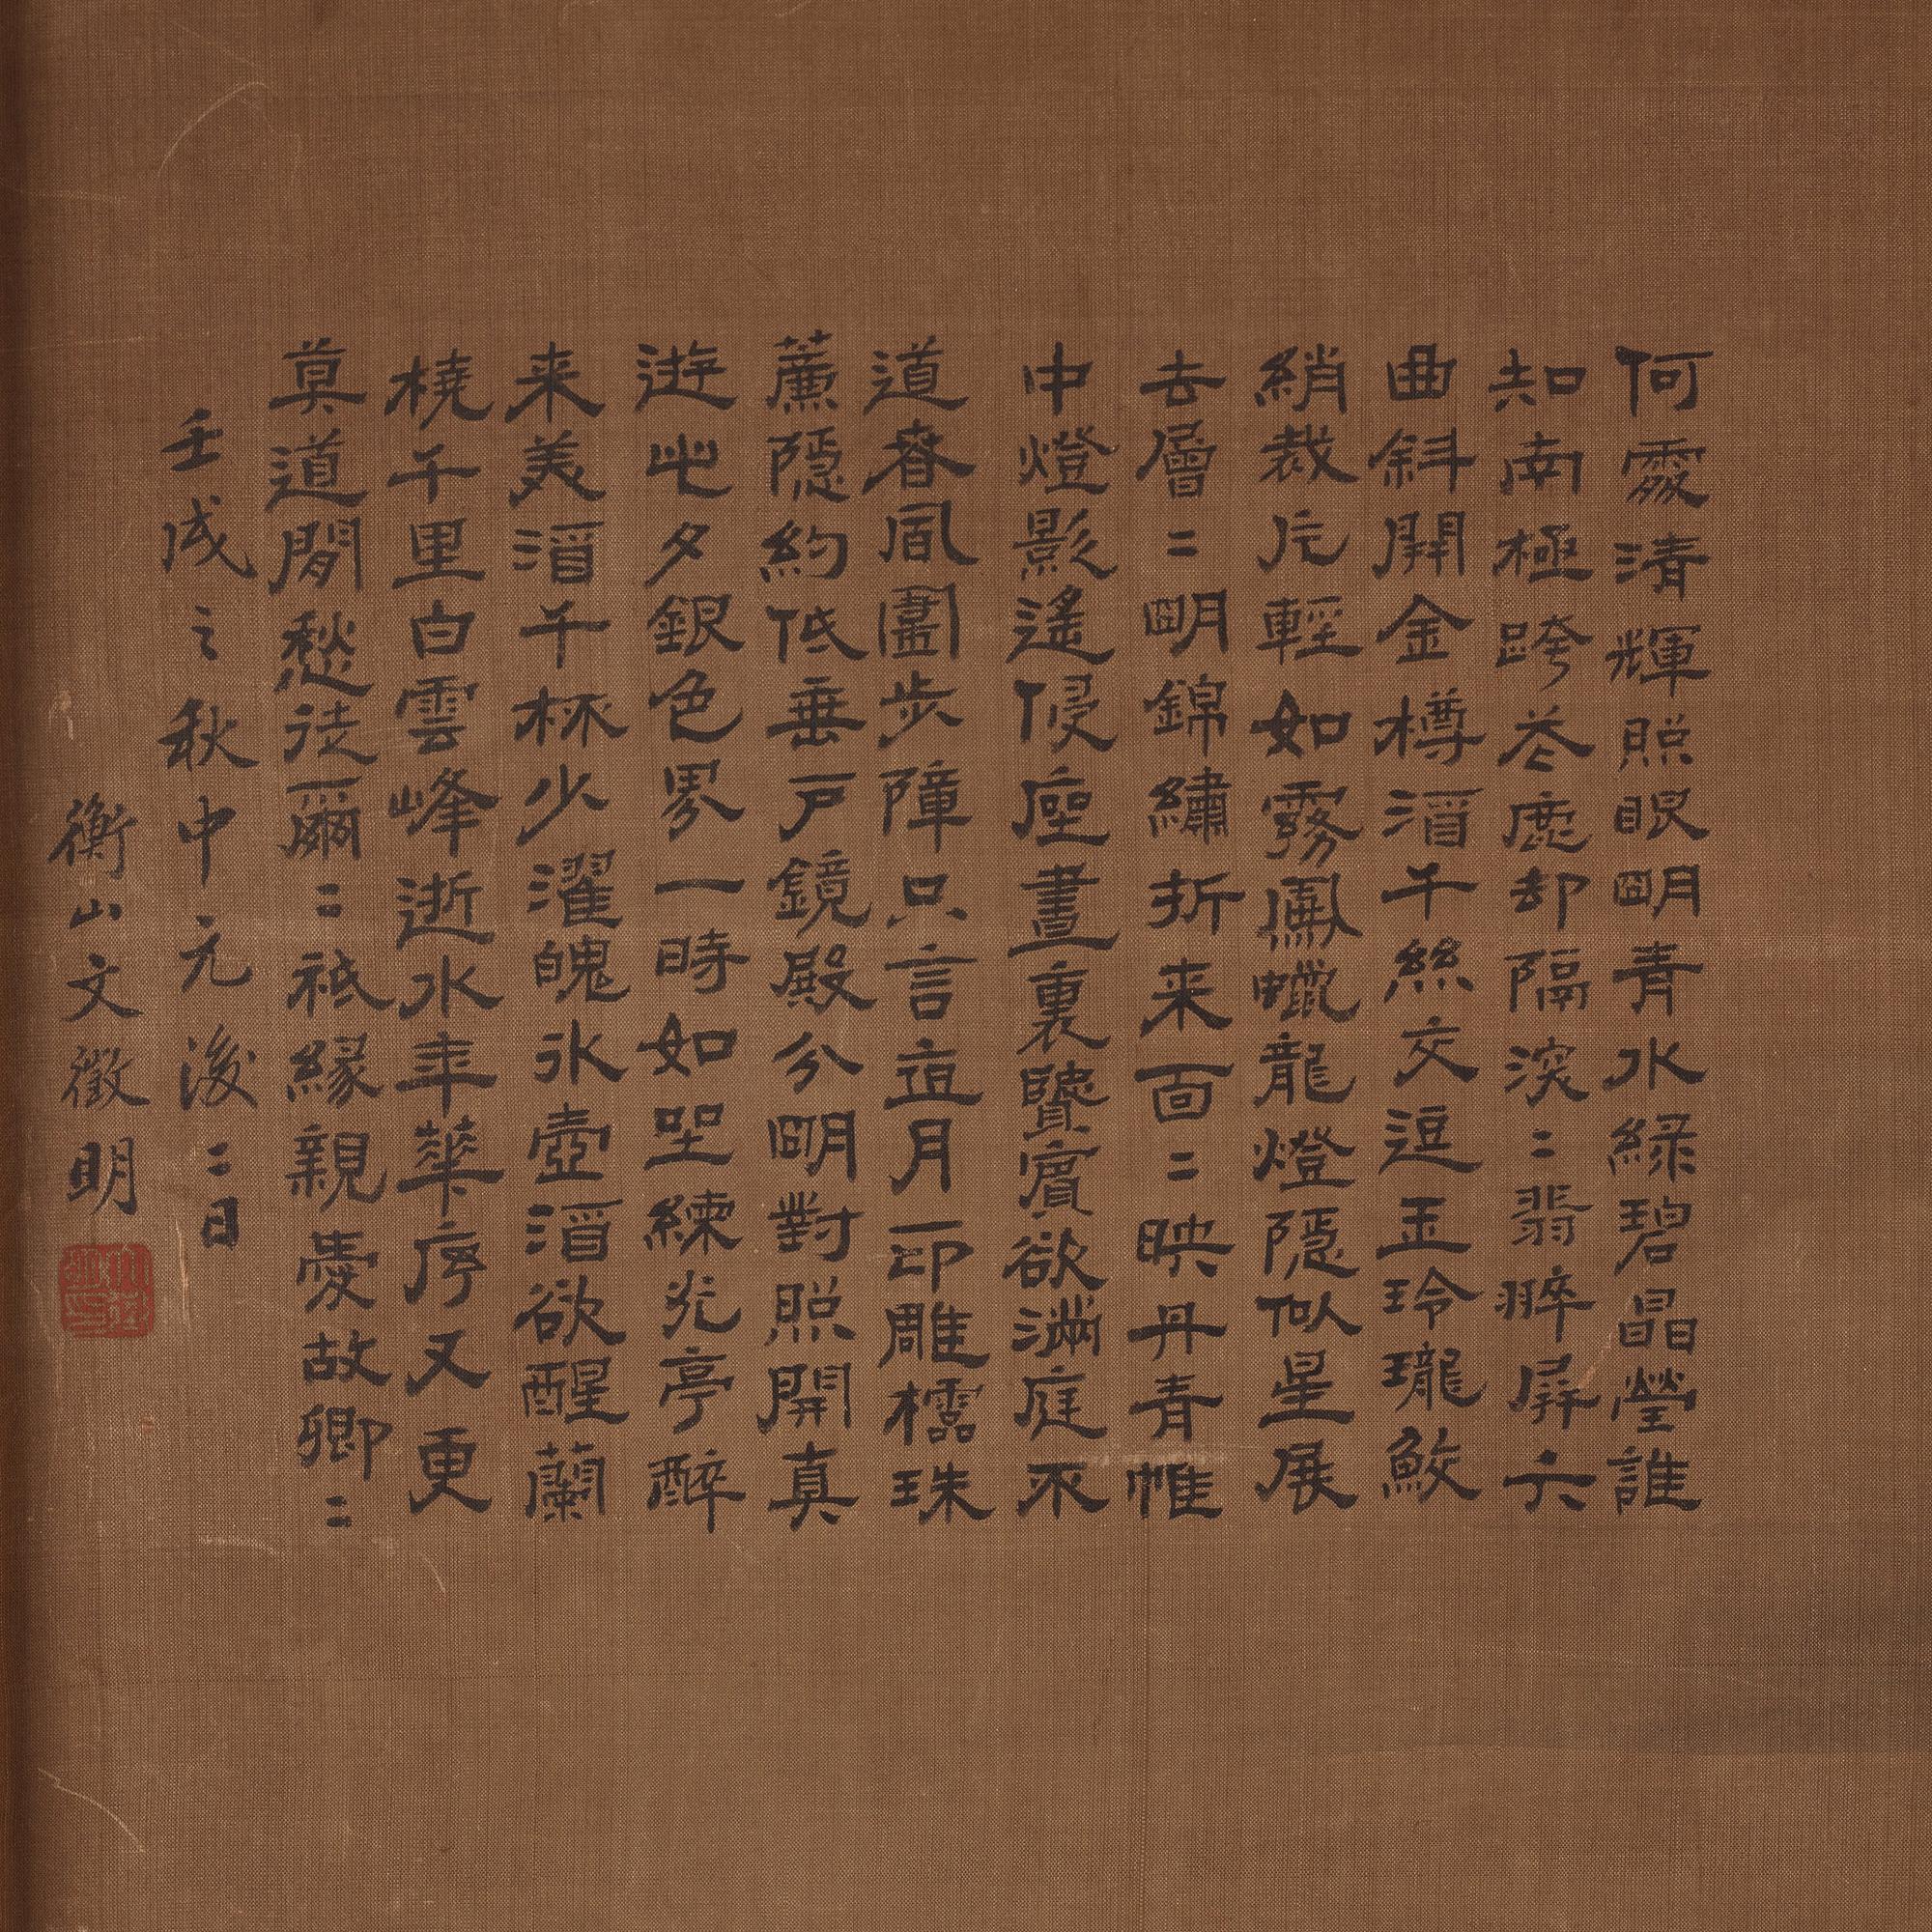 何處清輝照眼明青水綠碧晶瑩誰
知南極跨鹿却隔深〻翡翠屏六
曲斜開金樽酒千絲交逗玉玲瓏鮫
綃裁片輕如霧鳳蠟龍燈隱似星展
去層〻明錦繡折来面〻映丹青帷
中燈影遙侵座畫裏賢賓欲滿庭不
道春風圖步障只言這月印雕櫺珠
簾隱約低垂戶鏡殿分明對照開真
遊此夕銀色界一時如坐練光亭醉
来美酒千杯少濯魄冰壺酒欲醒蘭
橈千里白雲峰逝水年華序又更
莫道閒愁徒爾〻祇緣親憂故卿〻
壬戌之秋中元後二日
衡山文徵明